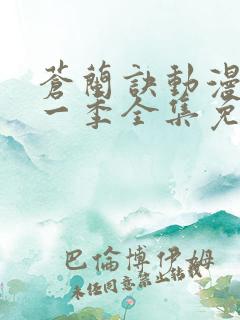 蒼蘭訣動漫
一季全集免
巴倫博伊姆
未經同意禁止轉載